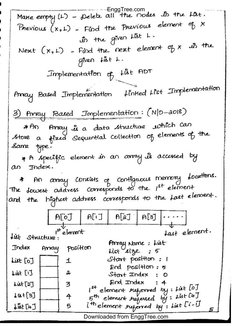 EnggTree.com
Make empty (L) - Delete all the nodes in the List.
Previous (X, L) - Find the Previous element of X
in the given List L.
Next (X, L) - Find the next element of X in the
given List L.
Implementation of List ADT
Array Based Implementation Linked List Implementation
3) Array Based Implementation : (N/D-2018)
* An Array is a data structure which can
store a fixed sequential collection of elements of the
same type.
* A specific element in an array is accessed by
an Index.
* An array consists of contiguous memory locations.
The lowest address corresponds to the 1st element
and the highest address corresponds to the Last element.
A[0] A[1] A[2] A[3] ......
1st element Last element.
List Structure:
Index Array Position
Array Name : List
List [0] 0 1
List size : 5
Start position : 1
List [1] 2
End position : 5
Start Index : 0
List [2] 3
End Index : 4
List [3] 4
1st element referred by : List [0]
5th element referred by : List [4]
List [4] 5
ith element referred by : List [i-1]
Downloaded from EnggTree.com